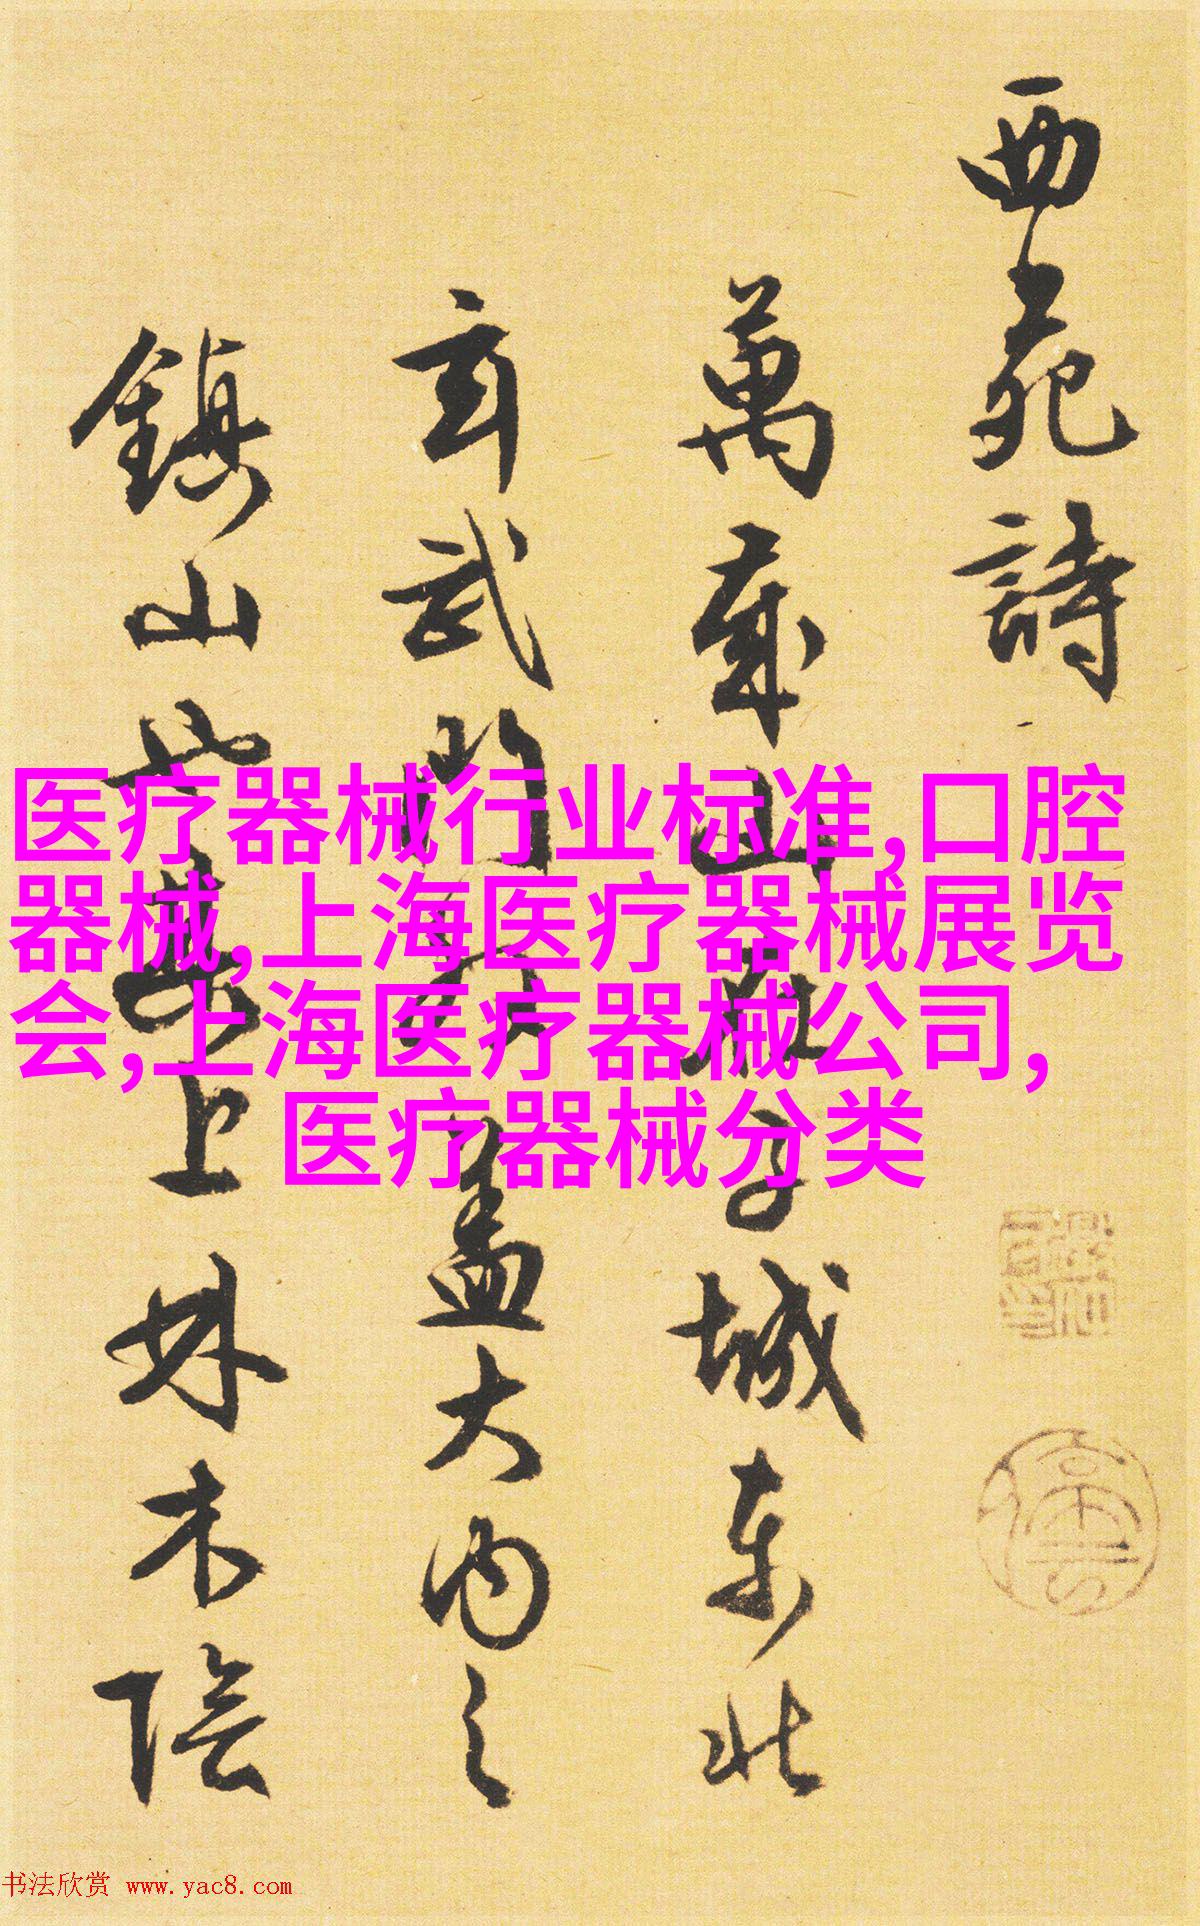 西苑詩
萬歲山在子城東北
玄武門外蓋大內之
鎮山也其上林木陰
医疗器械行业标准,口腔
器械,上海医疗器械展览
会,上海医疗器械公司,
医疗器械分类
书法欣赏 www.yac8.com